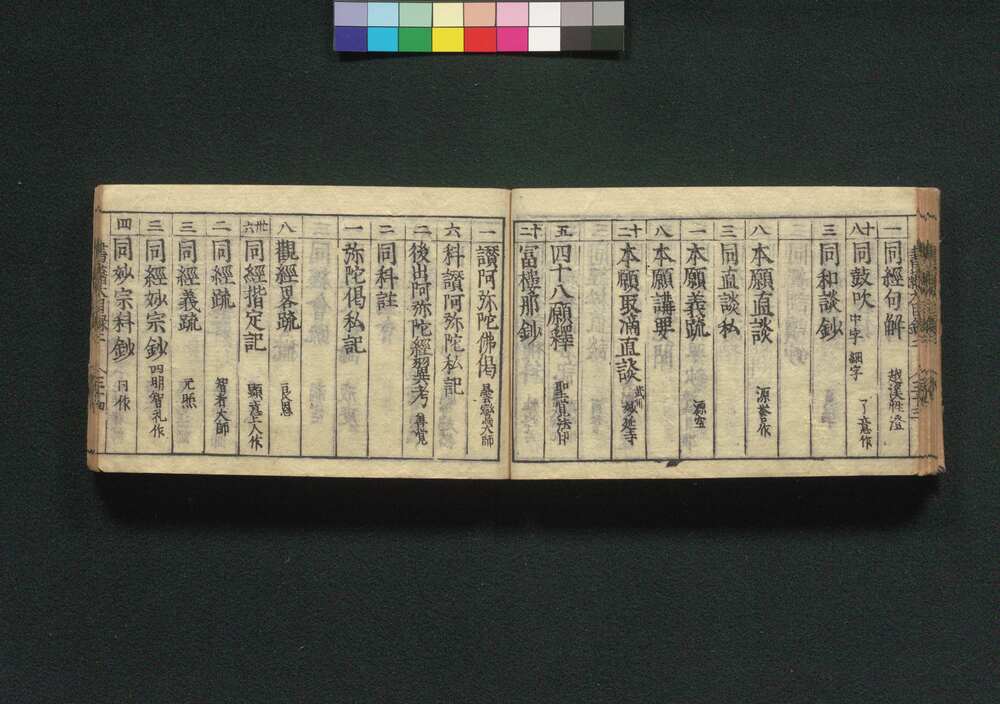 一 同經句解 越溪性澄
十八 同鼓吹 中字 細字 了意作
三 同和談鈔
八 本願直談 源誉作
三 同直談私
一 本願義疏 源空
八 本願講要
十二 本願取滴直談 武州 妙延寺
五 四十八願釋 聖覚法印
十二 冨樓那鈔
一 讃阿弥陀佛偈 曇鸞大師
六 科讃阿弥陀私記
一 後出阿弥陀經異考 尊覚
二 同科註
一 弥陀偈私記
八 觀經畧疏 良恩
卅六 同經揩定記 顕意上人作
二 同經疏 智者大師
三 同經義疏 元照
三 同經妙宗鈔 四明智礼作
四 同妙宗科鈔 同作